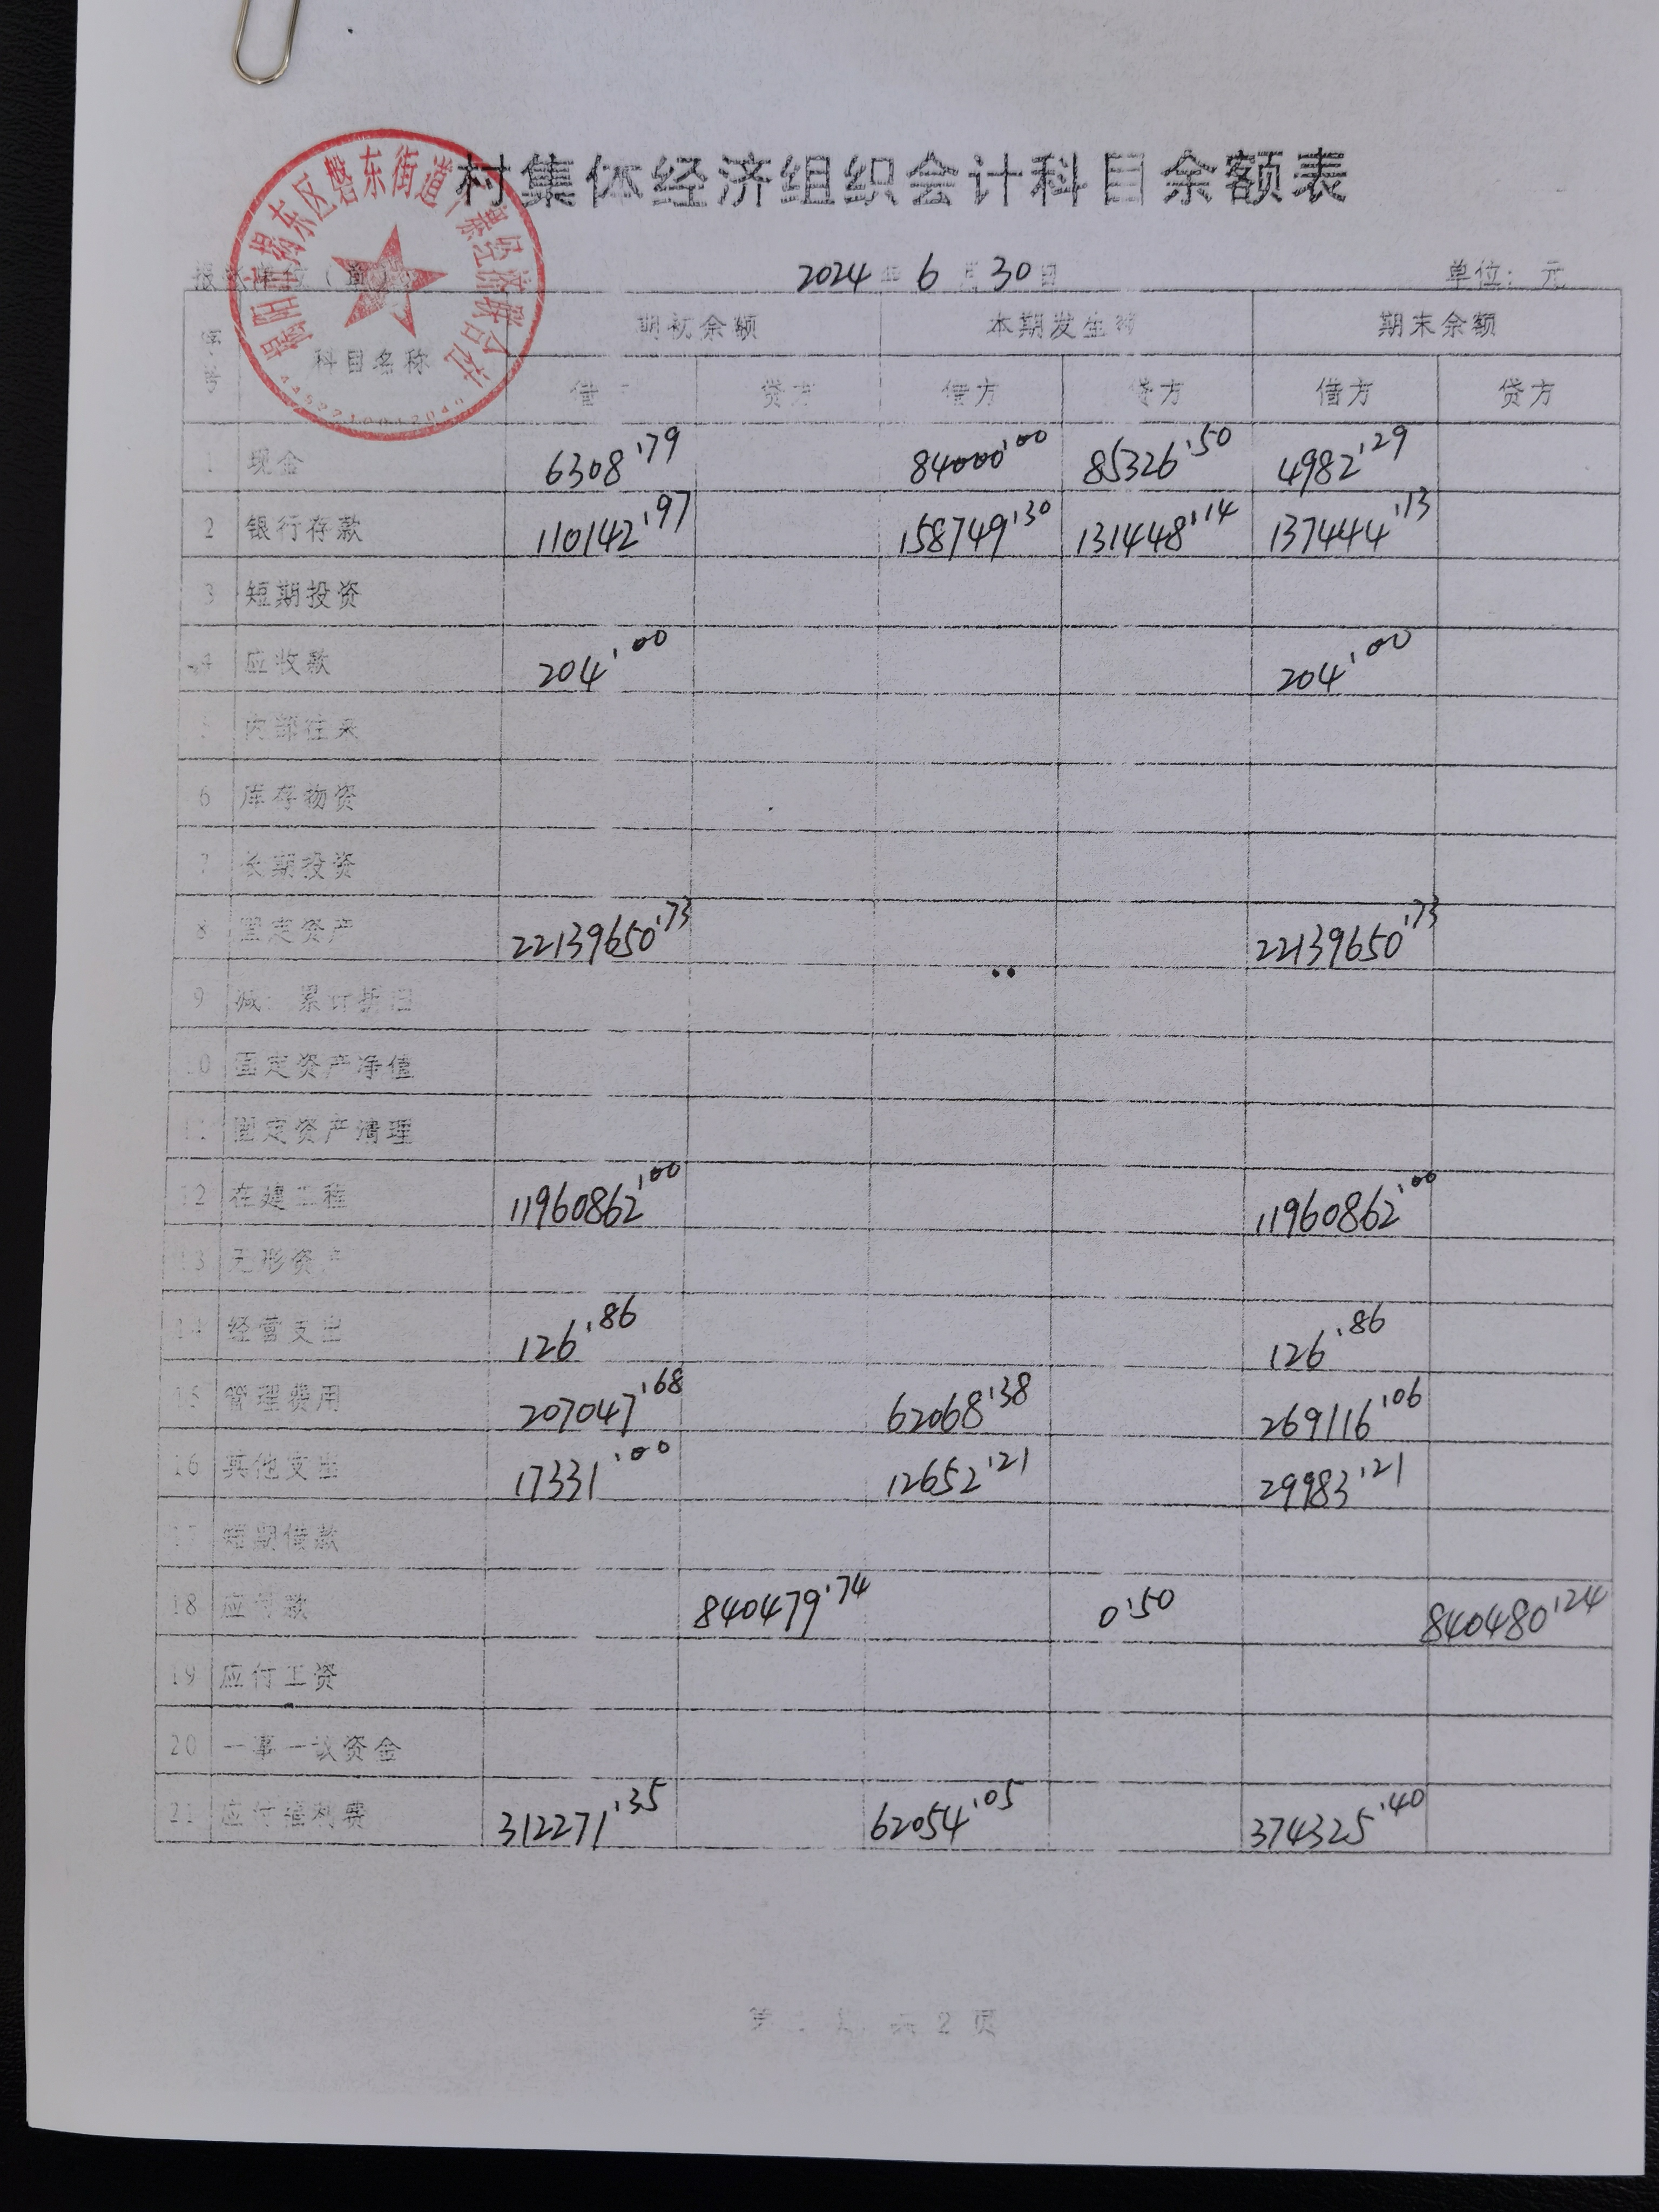 村集体经济组织会计科目余额表
揭东区磐东街道 经济联合社
2024年6月30日 单位：元
序号 科目名称 期初余额 本期发生 期末余额
借 贷方 借方 贷方 借方 贷方
1 现金 6308.79 84000.00 85326.50 4982.29
2 银行存款 110142.97 158749.30 131448.14 137444.13
3 短期投资
4 应收款 204.00 204.00
5 内部往来
6 库存物资
7 长期投资
8 固定资产 22139650.73 22139650.73
9 减：累计折旧
10 固定资产净值
11 固定资产清理
12 在建工程 11960862.00 11960862.00
13 无形资产
14 经营支出 126.86 126.86
15 管理费用 207047.68 62068.38 269116.06
16 其他支出 17331.00 12652.21 29983.21
17 短期借款
18 应付款 840479.74 0.50 840480.24
19 应付工资
20 一事一议资金
21 应付福利费 312271.35 62054.05 374325.40
第 页 共 2 页